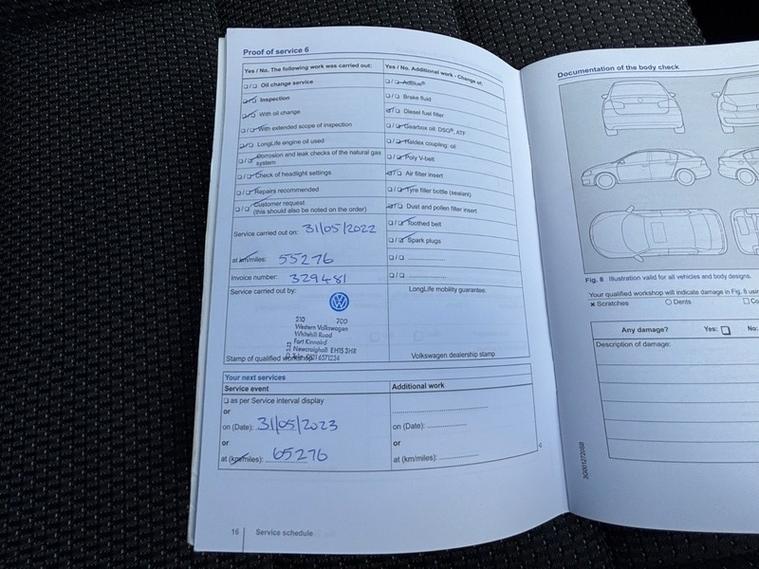 Proof of service 6
Yes / No. The following work was carried out:
☐/☐ Oil change service
☑/☐ Inspection
☑/☐ With oil change
☐/☑ With extended scope of inspection
☑/☐ LongLife engine oil used
☐/☑ Corrosion and leak checks of the natural gas
system
☐/☑ Check of headlight settings
☐/☑ Repairs recommended
☐/☑ Customer request
(this should also be noted on the order)
Service carried out on: 31/05/2022
at km/miles: 55276
Invoice number: 329481
Service carried out by:
210 700
Western Volkswagen
Whitehill Road
Fort Kinnaird
Newcraighall EH15 3HR
Stamp of qualified workshop
Yes / No. Additional work - Change of:
☐/☑ AdBlue®
☐/☑ Brake fluid
☑/☐ Diesel fuel filter
☐/☑ Gearbox oil: DSG®, ATF
☐/☑ Haldex coupling: oil
☐/☑ Poly V-belt
☑/☐ Air filter insert
☐/☑ Tyre filler bottle (sealant)
☑/☐ Dust and pollen filter insert
☐/☑ Toothed belt
☐/☑ Spark plugs
☐/☐ ..............
☐/☐ ..............
LongLife mobility guarantee.
Volkswagen dealership stamp
Your next services
Service event
☐ as per Service interval display
or
on (Date): 31/05/2023
or
at (km/miles): 65276
Additional work
on (Date): ..............
or
at (km/miles): ..............
16 Service schedule
Documentation of the body check
Fig. 8 Illustration valid for all vehicles and body designs.
Your qualified workshop will indicate damage in Fig. 8
× Scratches ○ Dents ☐
Any damage? Yes: ☐ No:
Description of damage: